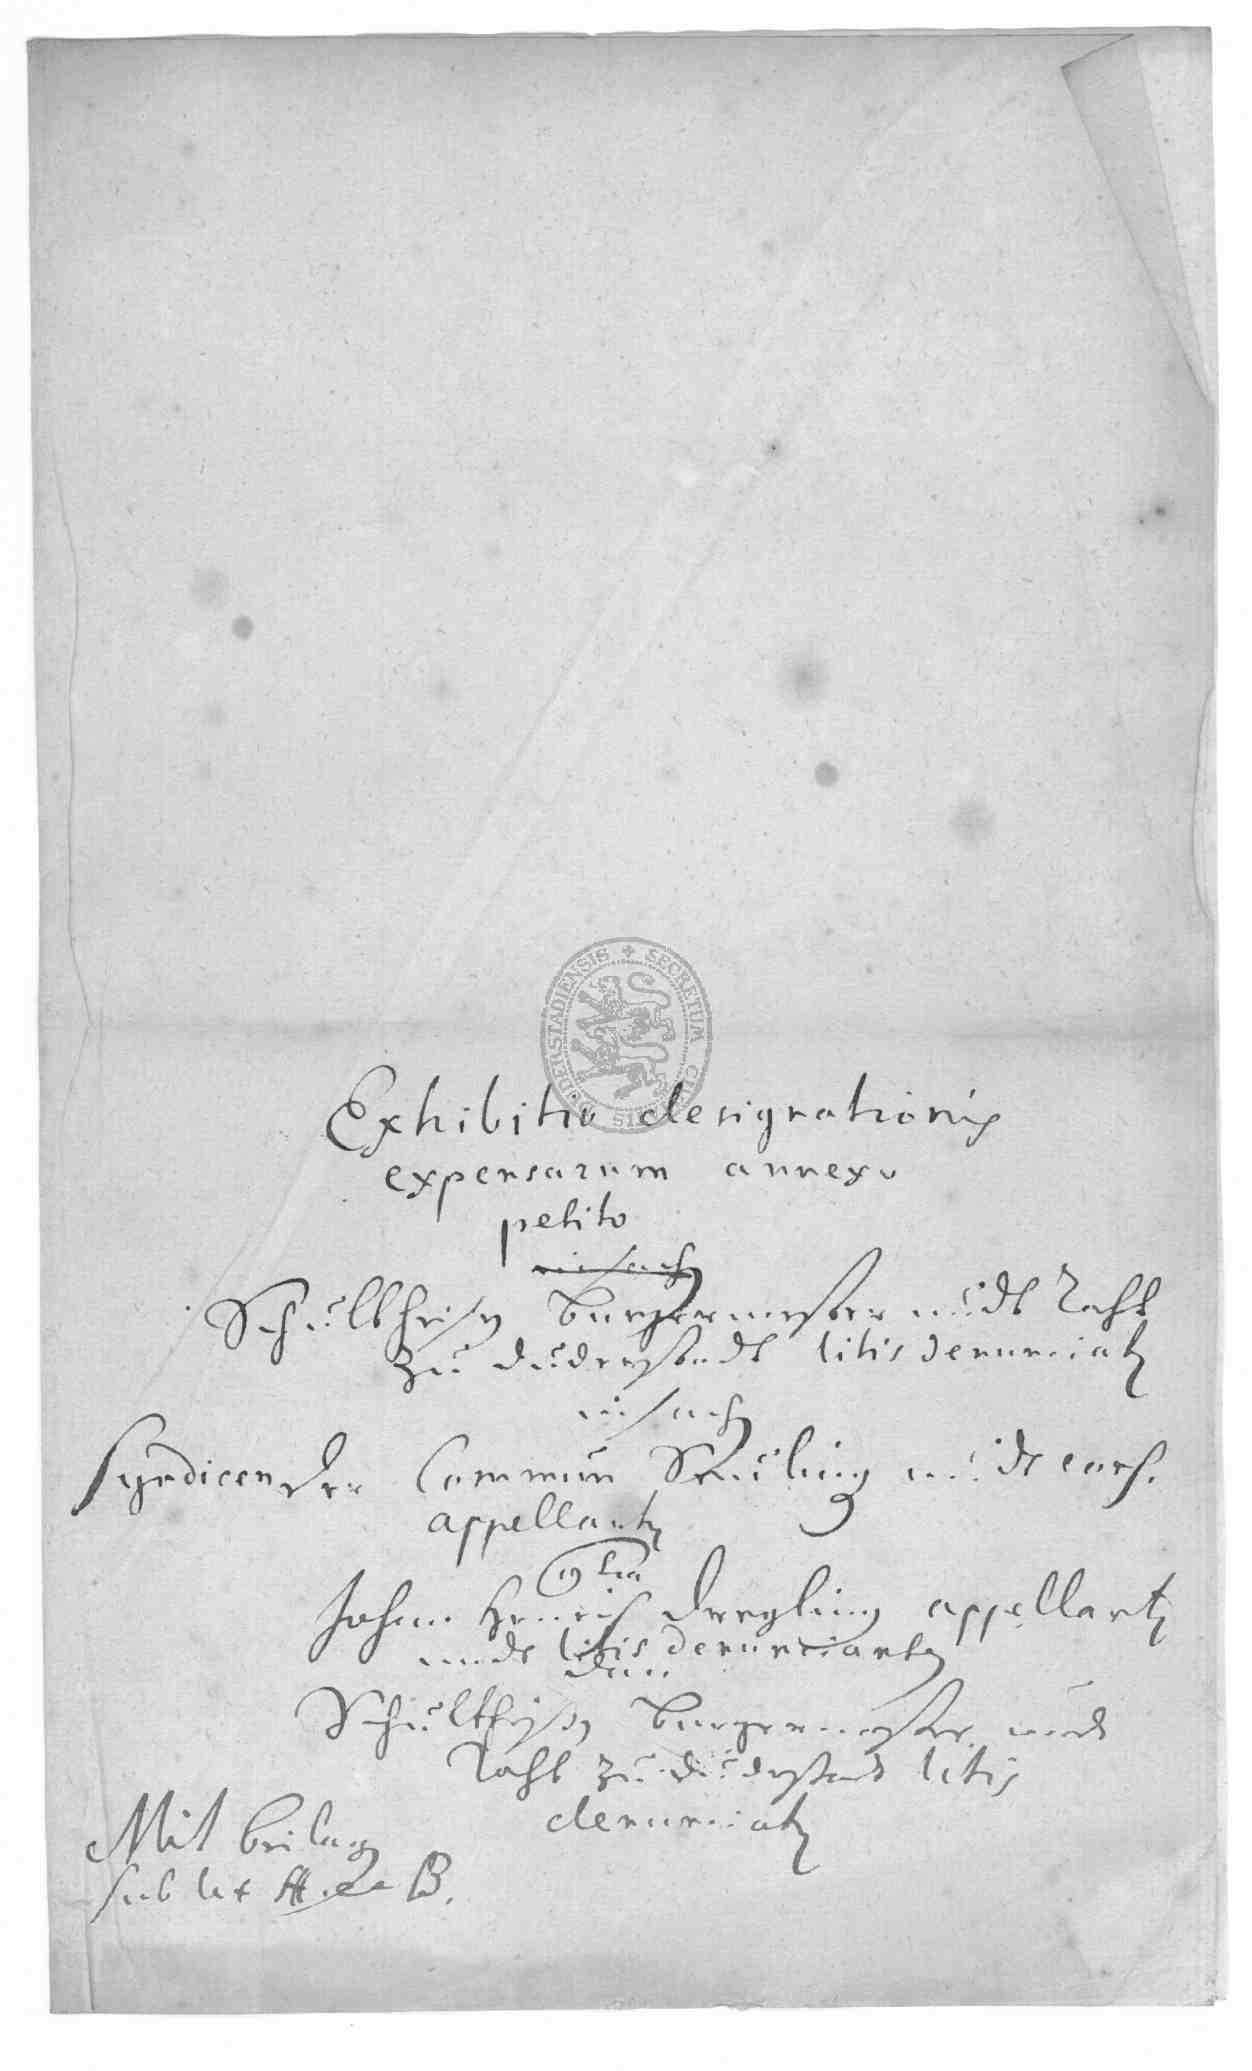 SECRETUM CIVITATIS DUDERSTADIENSIS
Exhibitio designationis
expensarum annexo
petito
in sachen
Schultheißen Burgermeister undt Raht
zu Duderstadt litis denunciaten
in sachen
Syndicen der Commun undt cons.
appellanten
contra
Johan Henrich appellanten
undt litis denuncianten
den
Schultheißen Burgermeister undt
Raht zu Duderstadt litis
denunciaten
Mit beilagen
sub lit A et B.